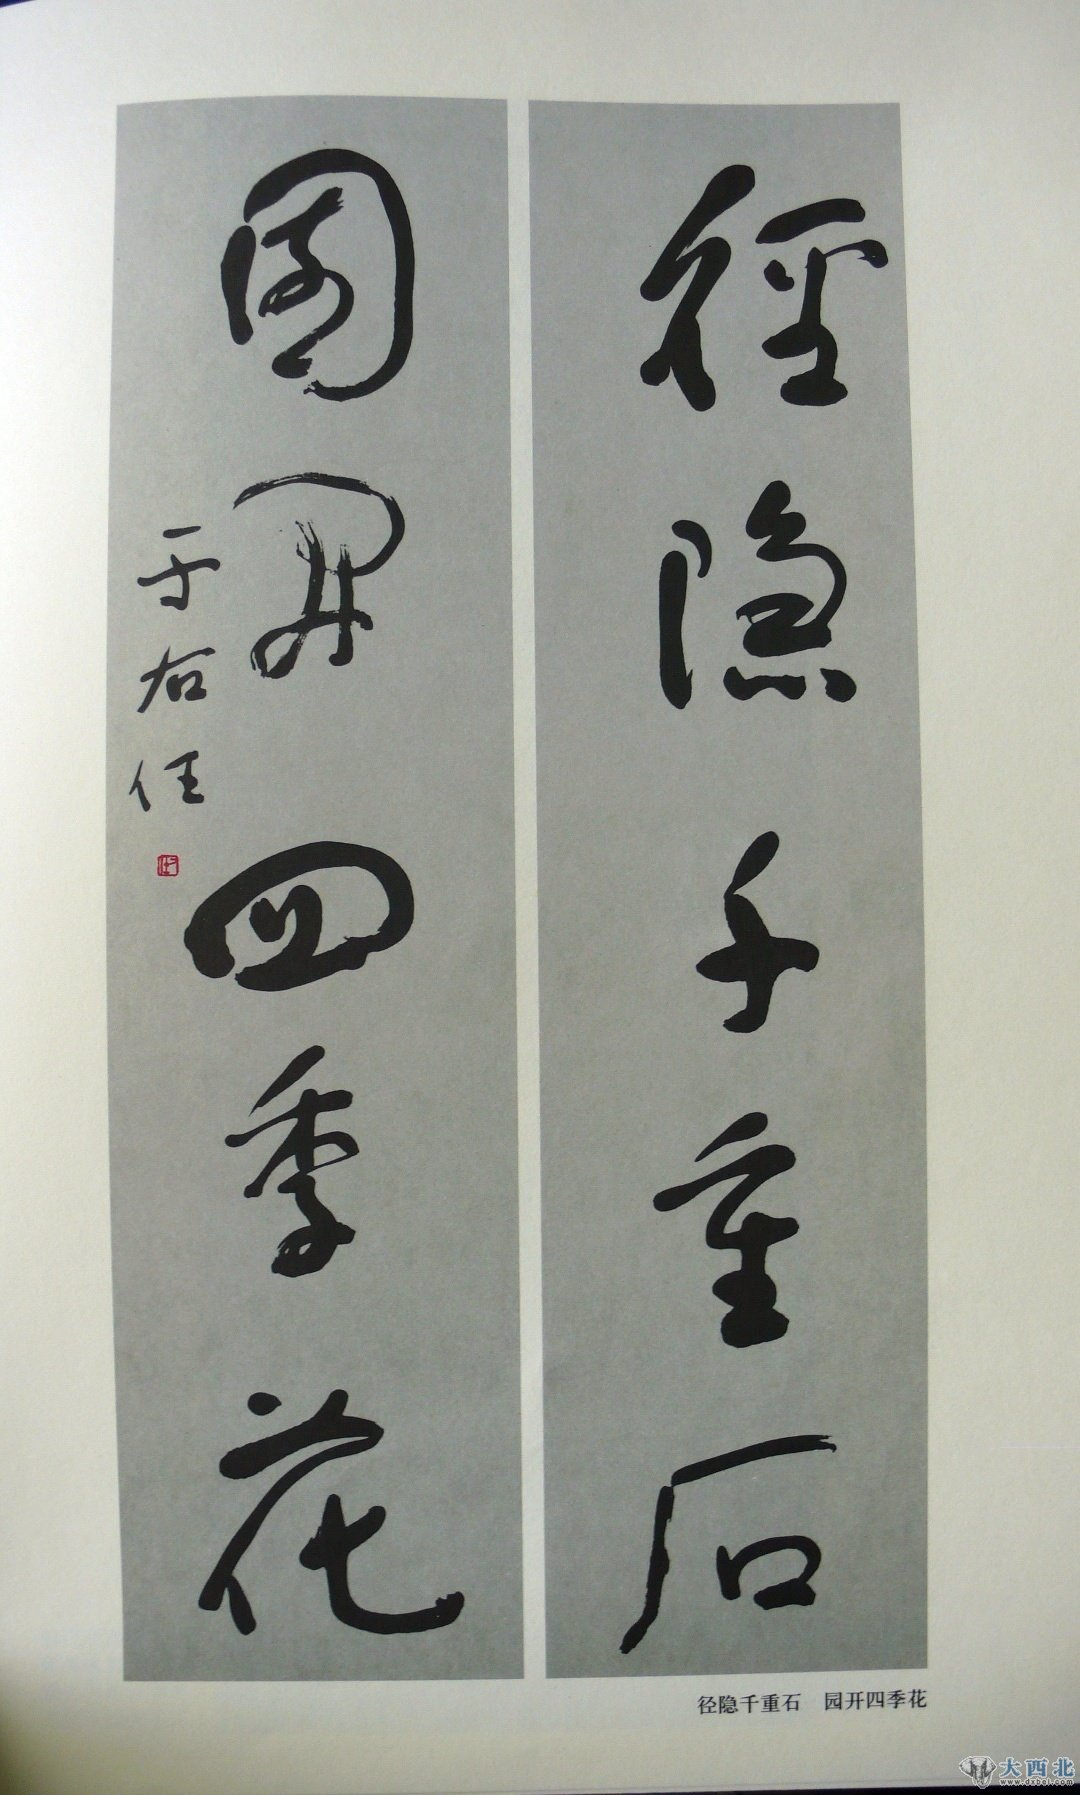 徑隐千重石
園開四季花
于右任
径隐千重石　园开四季花
大西北
www.dxbei.com